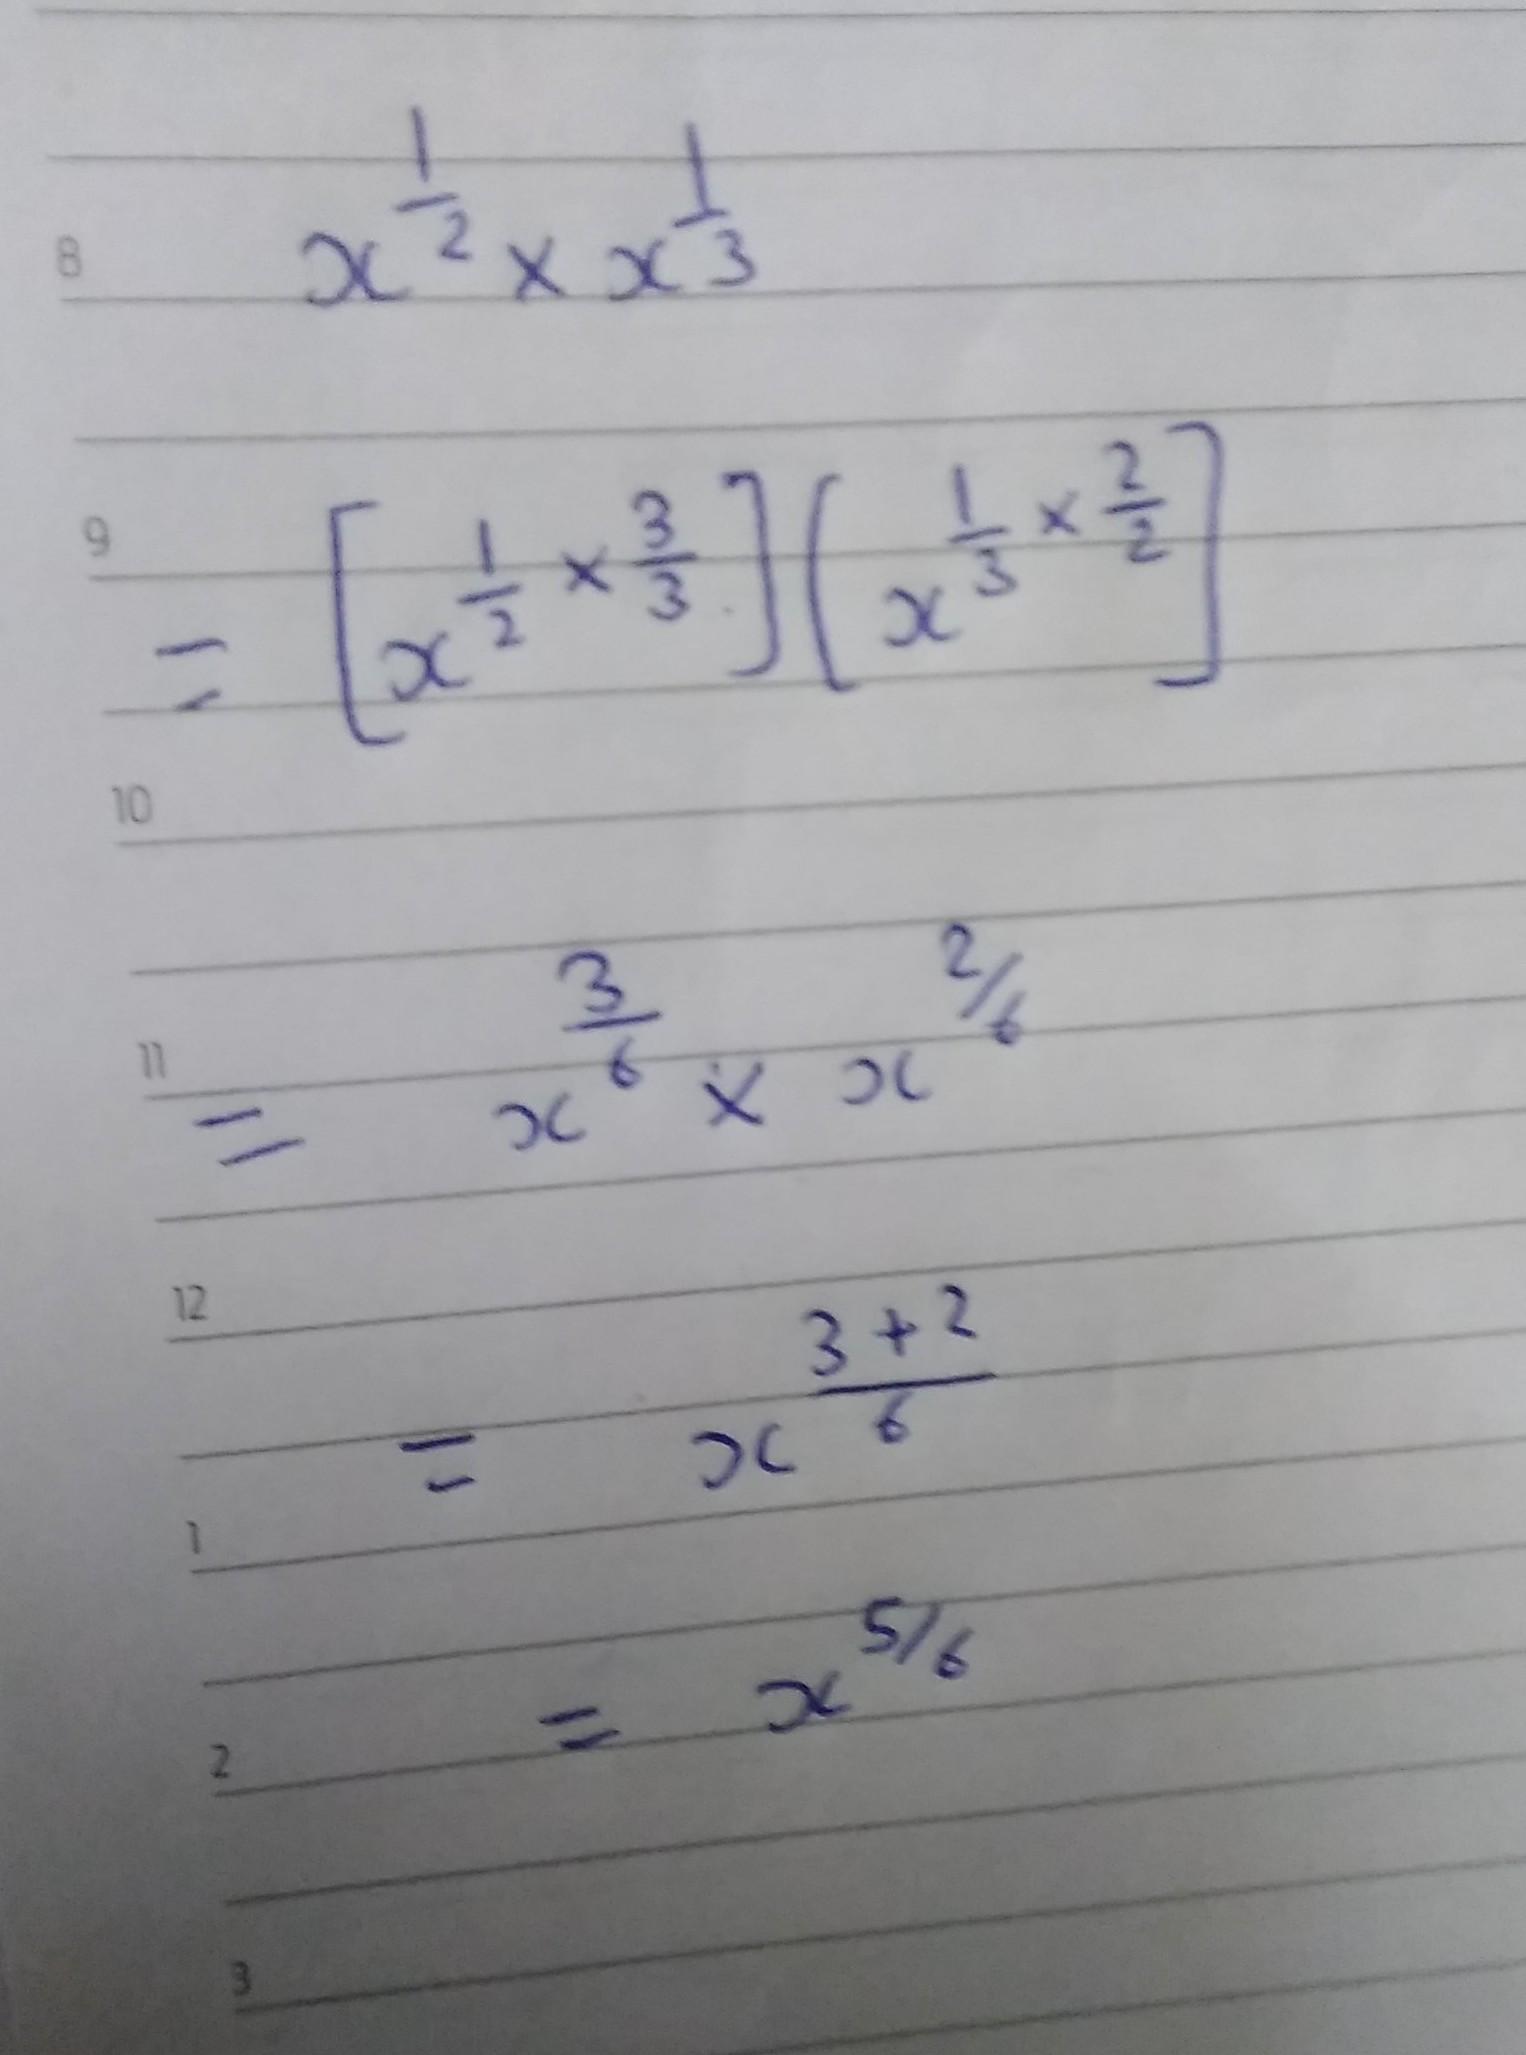 8 x^{\frac{1}{2}} × x^{\frac{1}{3}}
9
= [x^{\frac{1}{2} × \frac{3}{3}}] [x^{\frac{1}{3} × \frac{2}{2}}]
10
11
= x^{\frac{3}{6}} × x^{2/6}
12
= x^{\frac{3+2}{6}}
1
= x^{5/6}
2
3